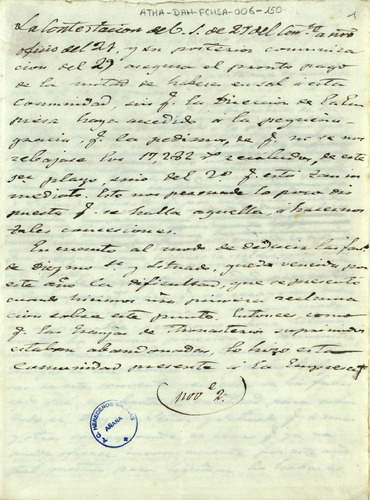 ATHA-DAH-FCHSA-006-150
La Contestacion de V. S. de 29 del Corr.te a nro
oficio del 24, y su posterior comunica
cion del 29 asegura el pronto pago
de la mitad de haber en sal á esta
Comunidad, sin q.e la Direccion de la Em
presa haya accedido á la pequeña
gracia, q.e la pedimos, de q.e no se nos
rebajase los 17,282 r.s recaudados, de este
1er plazo, sino del 2.o q.e está tan in
mediato. Esto nos persuade lo poco dis
puesta q.e se halla aquella, á hacernos
tales concesiones.
En cuanto al modo de deducir las fan.s
de Diezmo y situado, queda vencida por
este año la dificultad, que se presentó
cuando hicimos nra primera reclama
cion sobre este punto. Entonces, como
q.e las Granjas de Monasterios suprimidos
estaban abandonadas, lo hizo esta
Comunidad presente á la Empresa,
nov.e 2.
A.G. HEREDEROS
ARABA